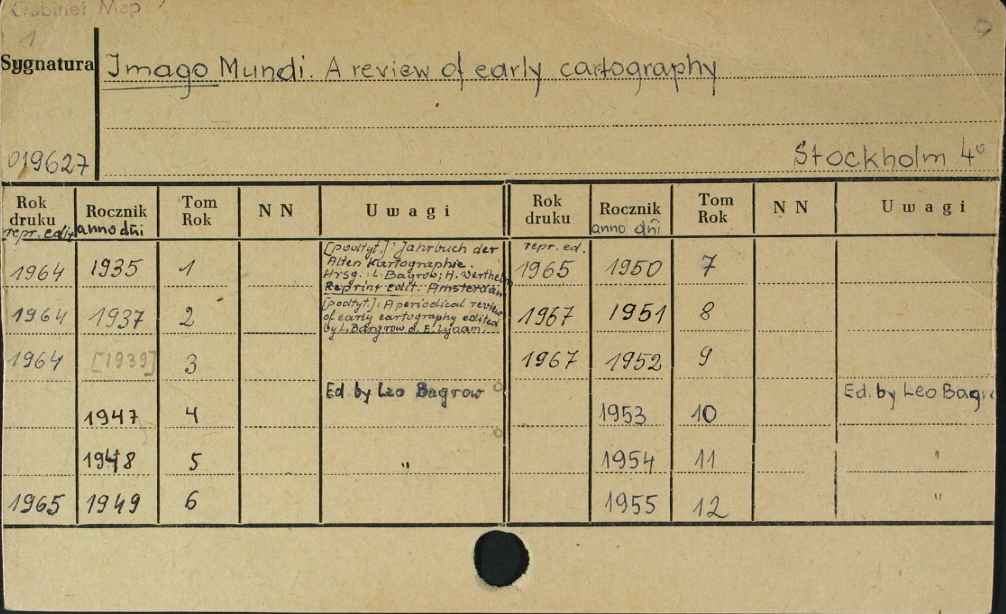 Gabinet Map
1
Sygnatura
Imago Mundi. A review of early cartography
019627
Stockholm 4°
Rok druku repr. edit. Rocznik anno dñi Tom Rok N N Uwagi Rok druku Rocznik anno dñi Tom Rok N N Uwagi
1964 1935 1 [podtyt.]: Jahrbuch der
Alten Kartographie.
Hrsg.: L. Bagrob; H. Werthe
Reprint edit. Amsterdam
repr. ed.
1965 1950 7
1964 1937 2 [podtyt.]: A periodical review
of early cartography edited
by L. Bangrow a. E. Lynam.
1967 1951 8
1964 [1939] 3
1967 1952 9
1947 4 Ed. by Leo Bagrow
1953 10 Ed. by Leo Bagr
1948 5 "
1954 11 "
1965 1949 6
1955 12 "